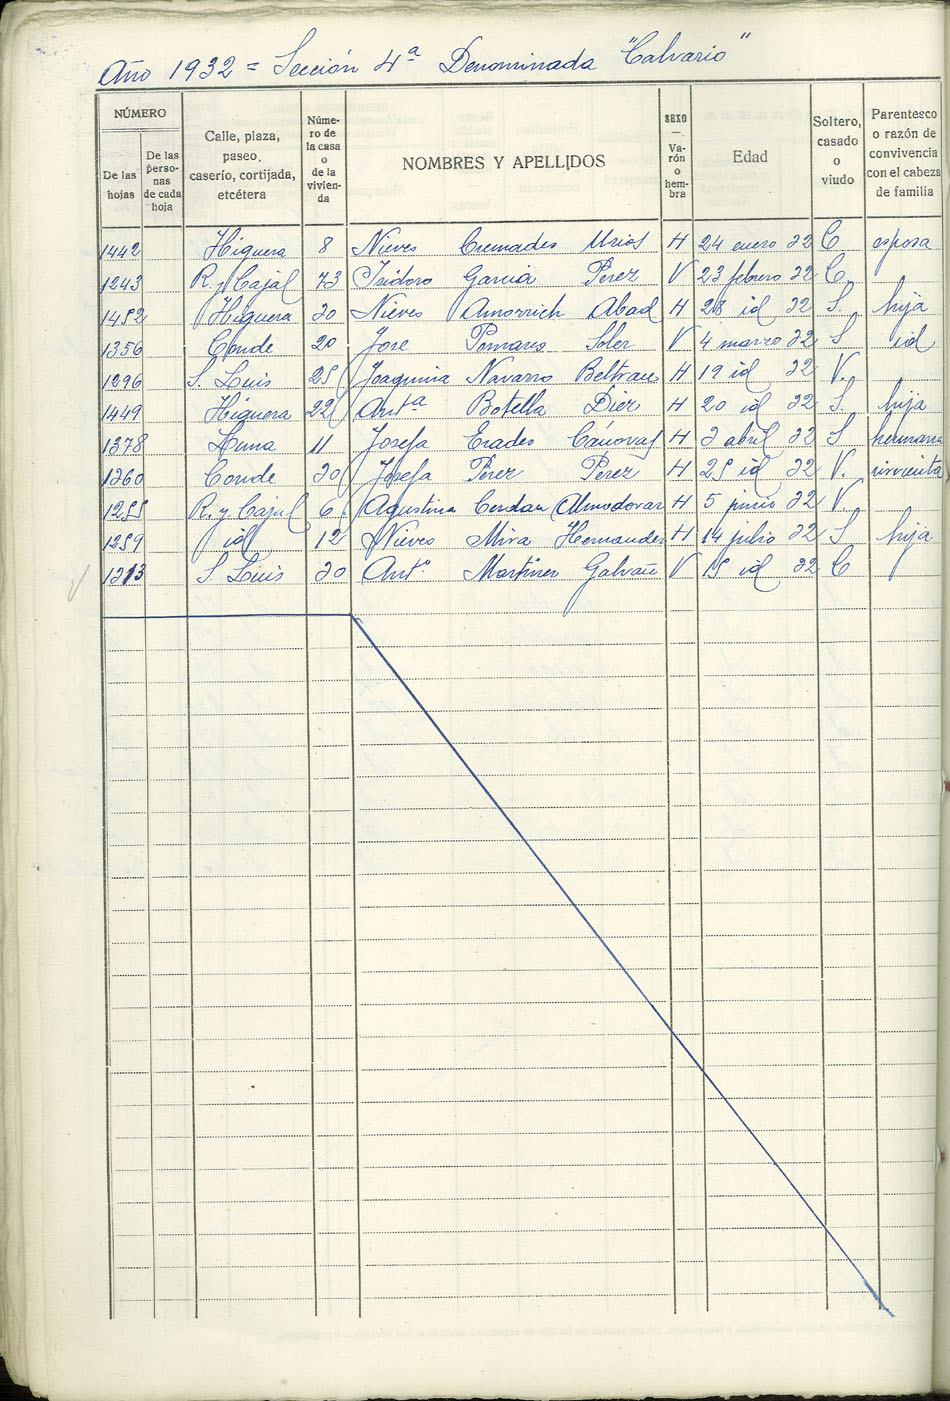 Año 1932 = Sección 4ª Denominada "Calvario"
NÚMERO
De las hojas
De las perso-nas de cada hoja
Calle, plaza, paseo, caserío, cortijada, etcétera
Núme-ro de la casa o de la vivien-da
NOMBRES Y APELLIDOS
SEXO — Va-rón o hem-bra
Edad
Soltero, casado o viudo
Parentesco o razón de convivencia con el cabeza de familia
1442 Higuera 8 Nieves Cremades Urios H 24 enero 32 C esposa
1243 R. y Cajal 73 Isidoro Garcia Perez V 23 febrero 32 C
1452 Higuera 30 Nieves Amorrich Abad H 28 id 32 S. hija
1356 Conde 20 Jose Pomares Soler V 4 marzo 32 S id
1296 S. Luis 25 Joaquina Navarro Beltran H 19 id 32 V.
1449 Higuera 22 Antª Botella Dier H 20 id 32 S. hija
1378 Luna 11 Josefa Erades Cánovas H 3 abril 32 S hermana
1360 Conde 30 Josefa Perez Perez H 25 id 32 V. sirvienta
1255 R. y Cajal 6 Agustina Cerdan Almodovar H 5 junio 32 V.
1259 id 12 Nieves Mira Hernandez H 14 julio 32 S hija
1313 S Luis 30 Antº Martinez Galvañ V 15 id 32 C